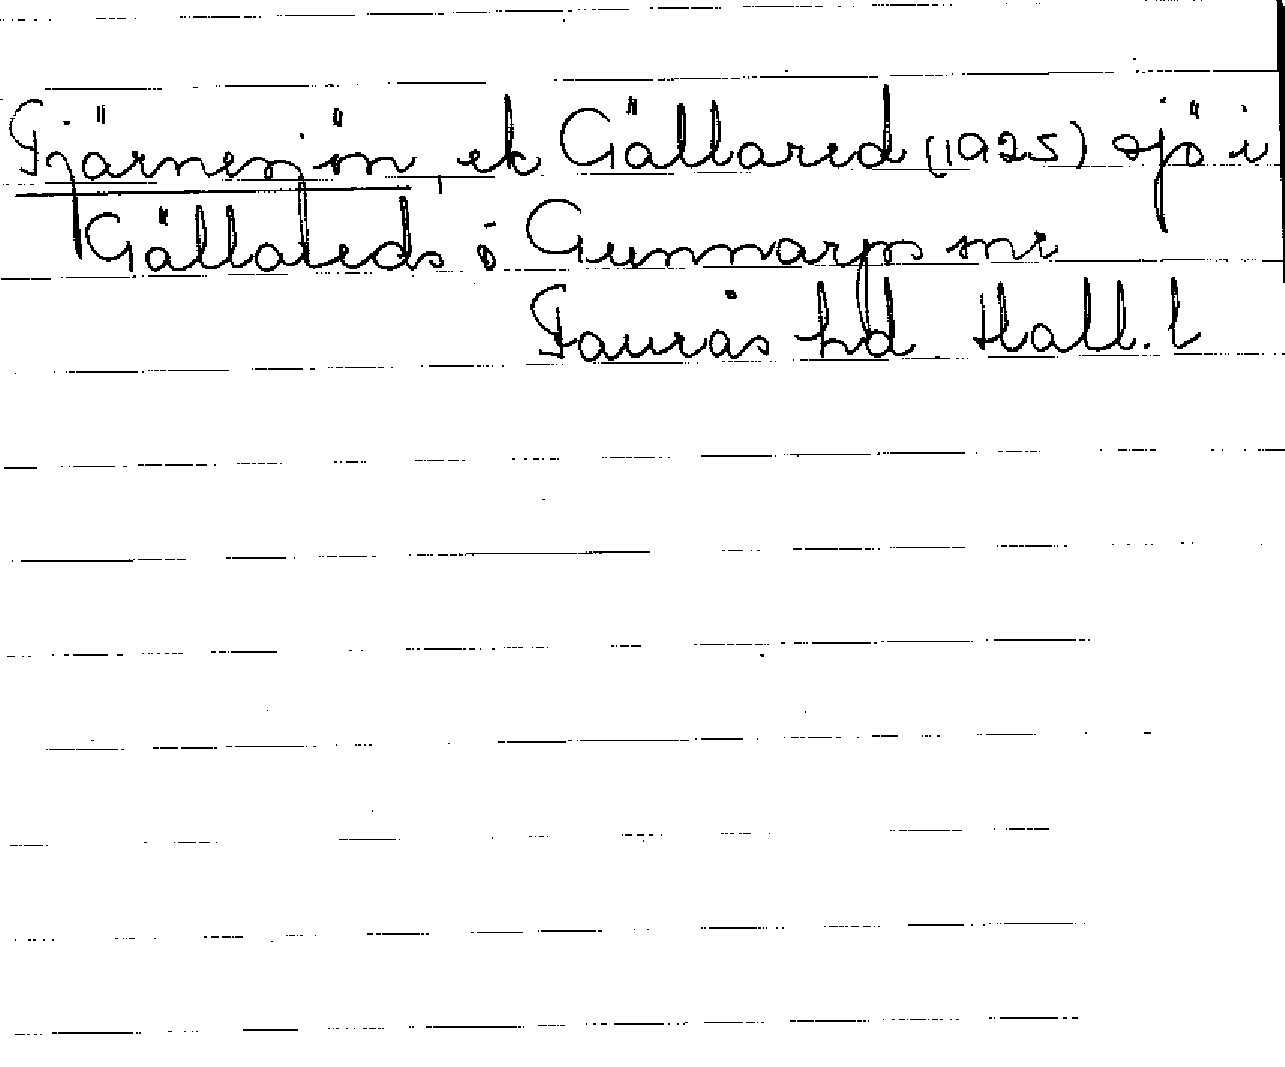 Fjärnesjön, ek Gällared (1925) sjö i
Gällareds o Gunnarps snr
Faurås hd Hall. l